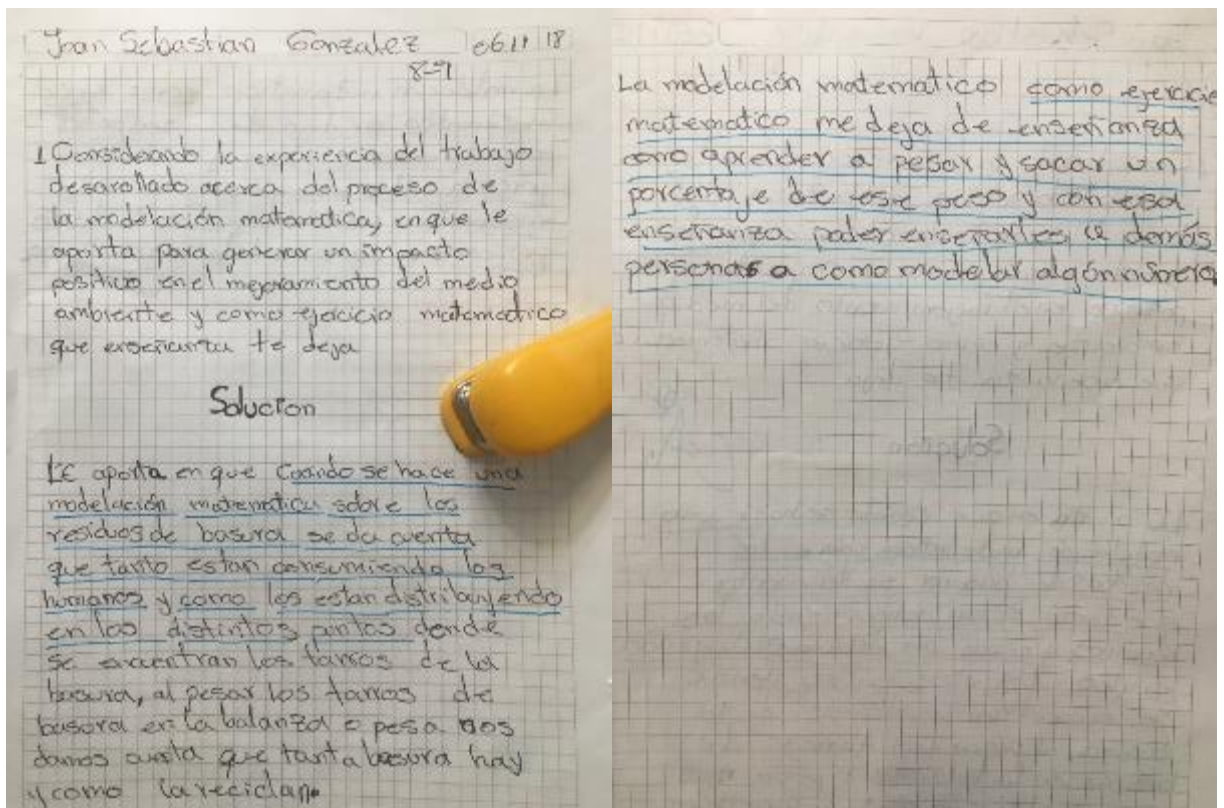 Joan Sebastian Gonzalez 06.11 18
8-9
1 Considerando la experiencia del trabajo
desarollado acerca del proceso de
la modelación matamatica, en que le
aporta para generar un impacto
positivo en el mejoramiento del medio
ambiente y como ejercicio matamatico
que enseñanza te deja
Solucion
LE aporta en que Cuando se hace una
modelación matematica sobre los
residuos de basura se da cuenta
que tanto estan consumiendo los
humanos y como los estan distribuyendo
en los distintos puntos donde
se encuentran los tarros de la
basura, al pesar los tarros de
basura en la balanza o pesa nos
damos cuenta que tanta basura hay
y como la reciclan.
La modelación matematico como ejercicio
matematico me deja de enseñanza
como aprender a pesar y sacar un
porcentaje de ese peso y con esa
enseñanza poder enseñarles a demás
personas a como modelar algún numero